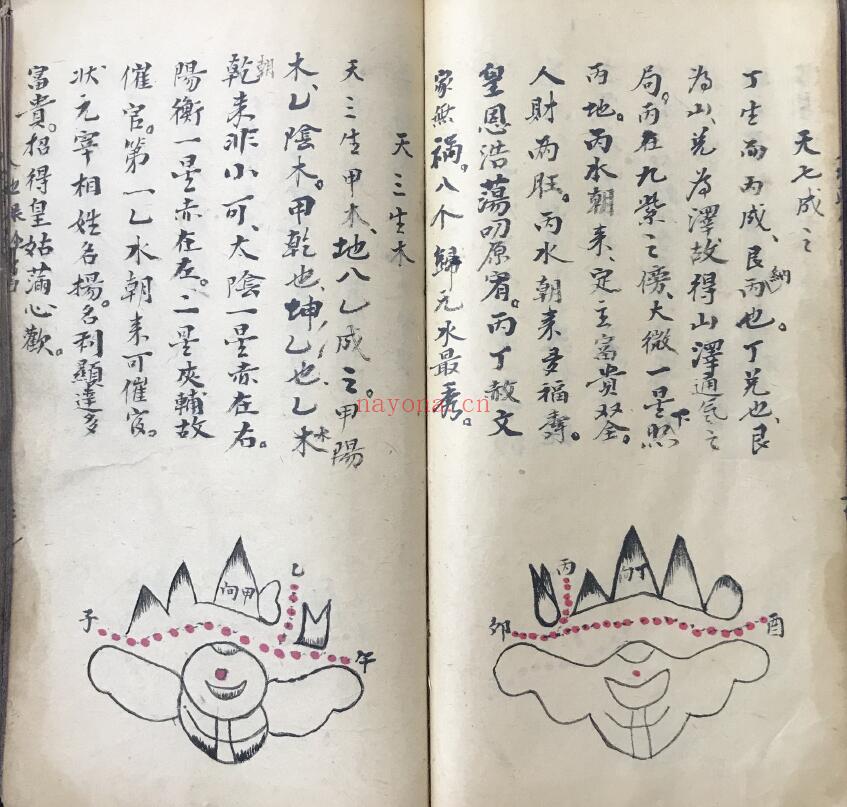 天七成之
丁生而丙成、艮納丙也。丁兑也、艮
為山、兑為澤故得山澤通气之
局。丙在九紫之傍、大微一星下照
丙地。丙水朝来、定主富貴双全。
人財両旺。丙水朝来多福壽。
皇恩浩蕩叨原宥。丙丁赦文
家無禍。八个歸元水最秀。
丙
丁
卯
酉
天三生木
天三生甲木、地八乙成之。甲陽
木、乙陰木。甲乾也、坤乙也乙木水
朝乾来非小可、太陰一星赤在右。
陽衡一星赤在左。二星夾輔故
催官。第一乙水朝来可催官。
状元宰相姓名楊。名利顯達多
富貴。招得皇姑滿心歡。
乙
甲向
子
午
nayona.cn